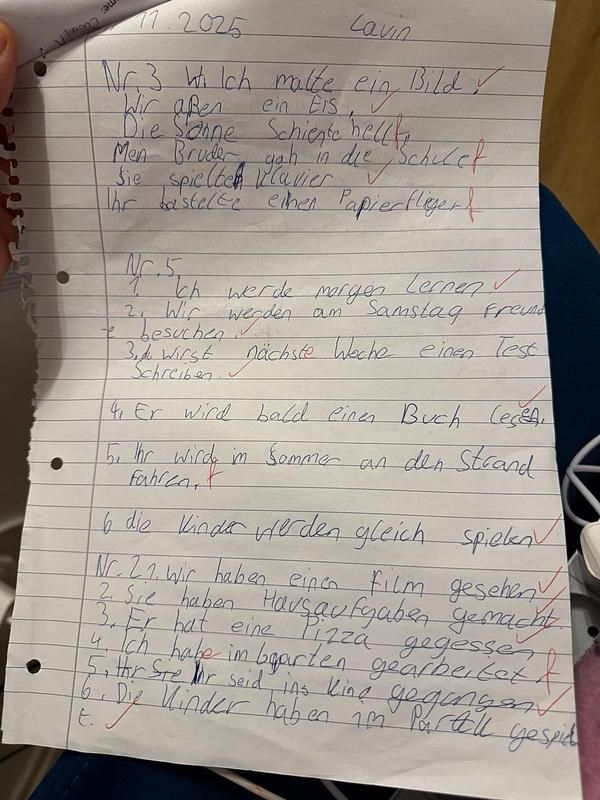 11.2025 Lavin
Nr. 3 W. Ich malte ein Bild.
Wir aßen ein Eis.
Die Sonne Schiente hell
Men Bruder gah in die Schule f
Sie spielten Klavier
Ihr bastelte einen Papierfliger f
Nr. 5
1. Ich werde morgen lernen
2. Wir werden am Samstag Freund
e besuchen.
3. du wirst nächste Woche einen Test
Schreiben.
4. Er wird bald einen Buch lesen.
5. Ihr wird im Sommer an den Strand
fahren. f
6 die Kinder werden gleich spielen
Nr. 2 1. Wir haben einen Film gesehen
2. Sie haben Hausaufgaben gemacht.
3. Er hat eine Pizza gegessen
4. Ich habe im garten gearbeitet f
5. Ihr seid ins Kino gegangen
6. Die Kinder haben im gespiel
t.